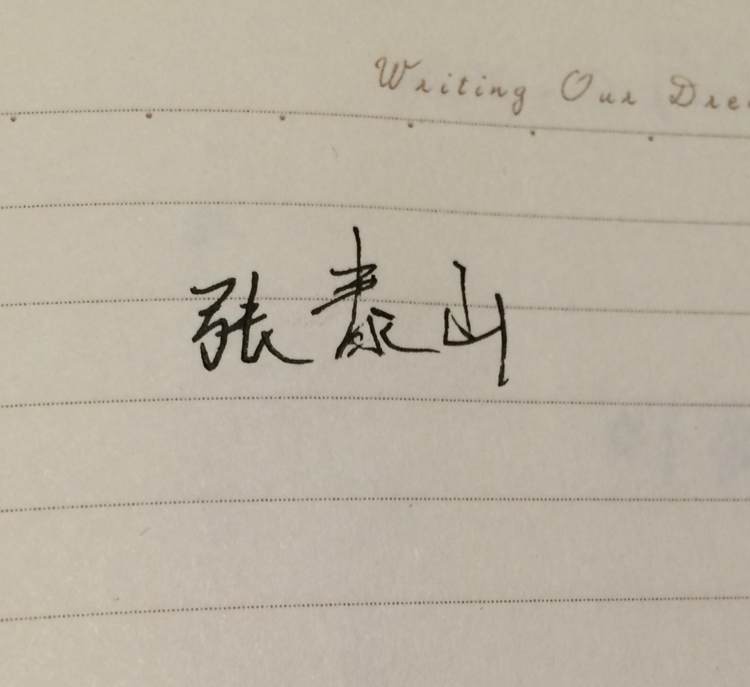 Writing Our Dre
张泰山